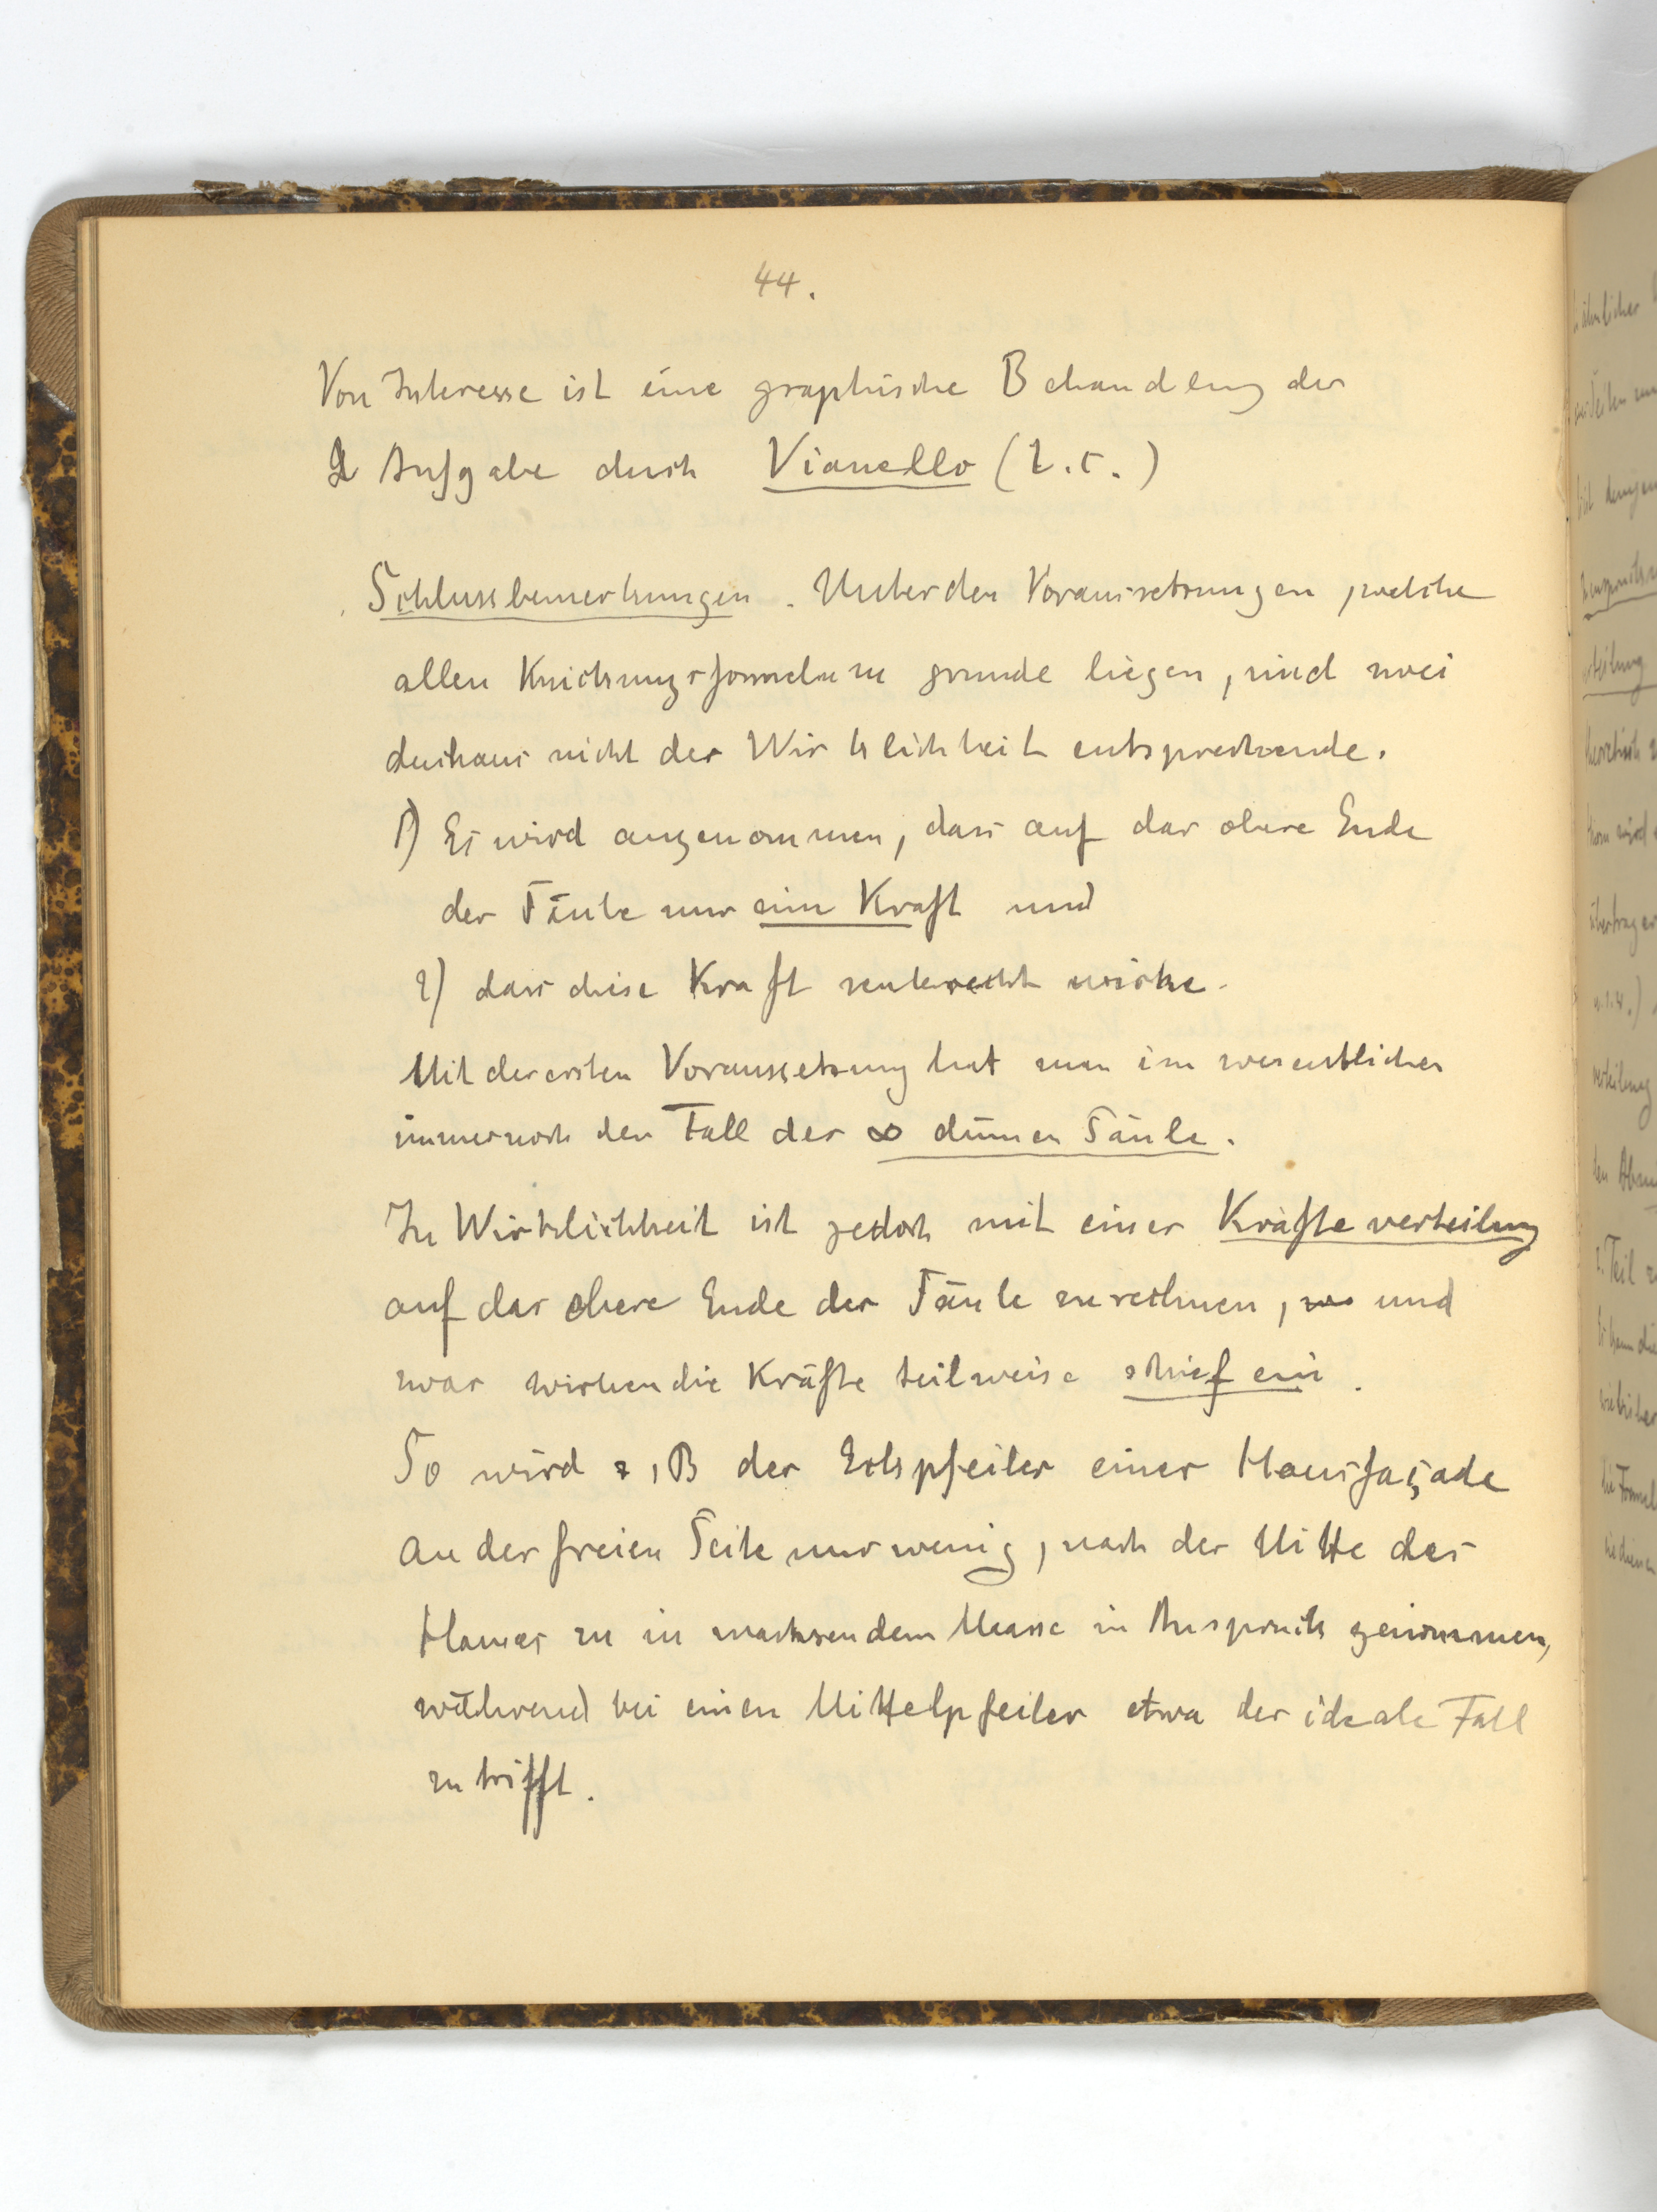 44.
Von Interesse ist eine graphische Behandlung der
Aufgabe durch Vianello (l.c.)
Schlussbemerkungen. Unter den Voraussetzungen, welche
allen Knickungsformeln zu grunde liegen, sind zwei
durchaus nicht der Wirklichkeit entsprechende.
1) Es wird angenommen, dass auf das obere Ende
der Säule nur eine Kraft und
2) dass diese Kraft senkrecht wirke.
Mit der ersten Voraussetzung hat man im wesentlichen
immer noch den Fall der ∞ dünnen Säule.
In Wirklichkeit ist jedoch mit einer Kräfteverteilung
auf das obere Ende der Säule zu rechnen, und
zwar wirken die Kräfte teilweise schief ein.
So wird z,B der Eckpfeiler einer Hausfaçade
an der freien Seite nur wenig, nach der Mitte des
Hauses zu in wachsendem Maasse in Anspruch genommen,
während bei einen Mittelpfeiler etwa der ideale Fall
zutrifft.